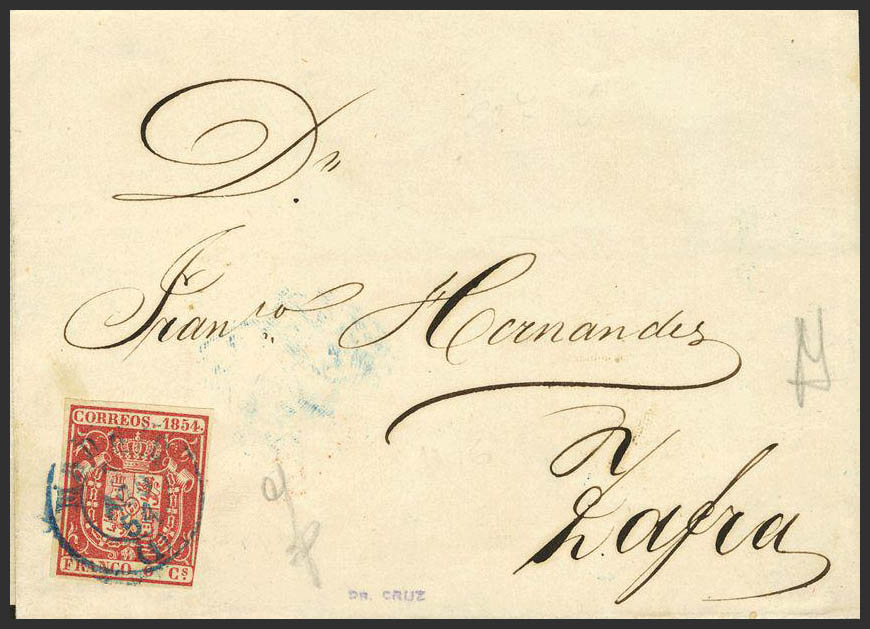 Dn
Franco Hernandez
Zafra
CORREOS. 1854.
MADRID
FRANCO 6 Cs
DR. CRUZ